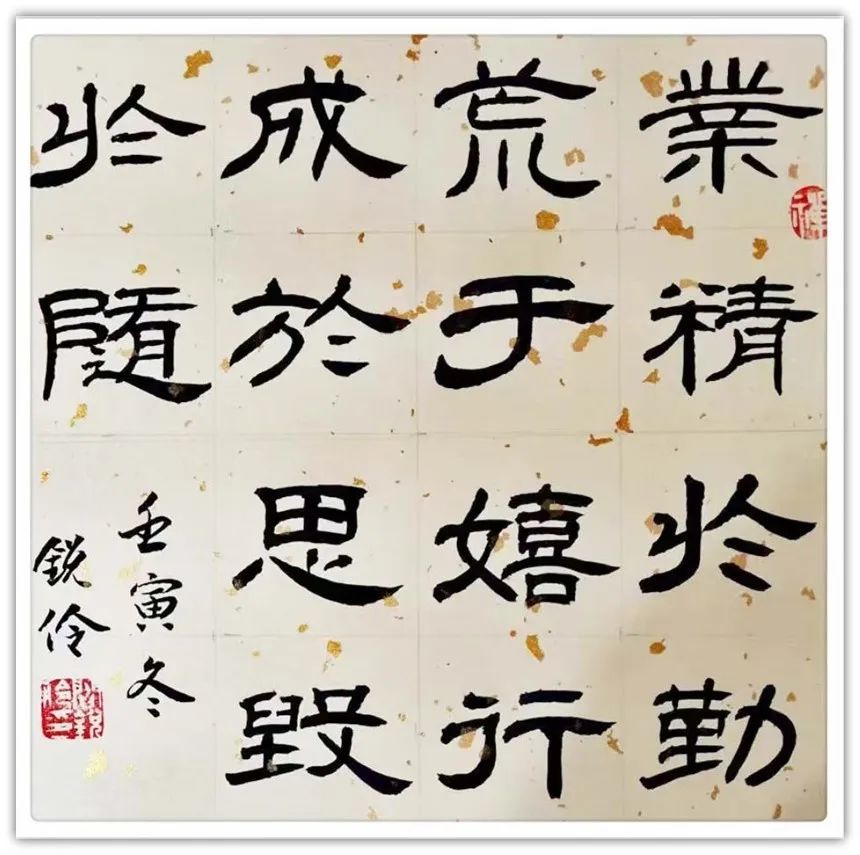 業精於勤
荒于嬉行
成於思毀
於隨
壬寅冬
銳伶